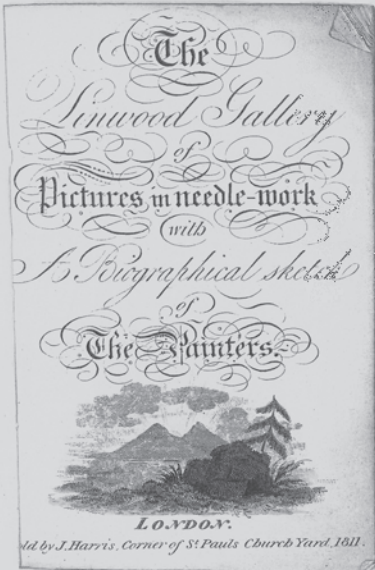 The
Linwood Gallery
of
Pictures in needle-work
with
A Biographical sketch
of
The Painters.
LONDON.
ld by J. Harris, Corner of St Pauls Church Yard, 1811.